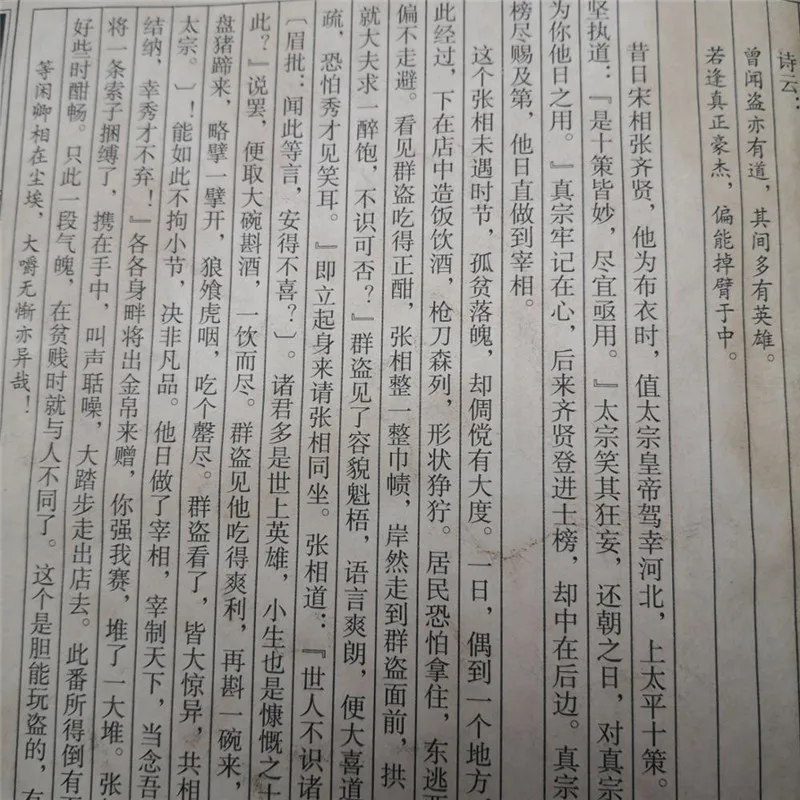 诗云：
曾闻盗亦有道，其间多有英雄。
若逢真正豪杰，偏能掉臂于中。
昔日宋相张齐贤，他为布衣时，值太宗皇帝驾幸河北，上太平十策。
坚执道：『是十策皆妙，尽宜亟用。』太宗笑其狂妄，还朝之日，对真宗
为你他日之用。』真宗牢记在心，后来齐贤登进士榜，却中在后边。真宗
榜尽赐及第，他日直做到宰相。
这个张相未遇时节，孤贫落魄，却倜傥有大度。一日，偶到一个地方，
此经过，下在店中造饭饮酒，枪刀森列，形状狰狞。居民恐怕拿住，东逃西
偏不走避。看见群盗吃得正酣，张相整一整巾帻，岸然走到群盗面前，拱
就大夫求一醉饱，不识可否？』群盗见了容貌魁梧，语言爽朗，便大喜道
疏，恐怕秀才见笑耳。』即立起身来请张相同坐。张相道：『世人不识诸
〔眉批：闻此等言，安得不喜？〕。诸君多是世上英雄，小生也是慷慨之士
此？』说罢，便取大碗斟酒，一饮而尽。群盗见他吃得爽利，再斟一碗来，
盘猪蹄来，略擘一擘开，狼飧虎咽，吃个罄尽。群盗看了，皆大惊异，共相
太宗。〕！能如此不拘小节，决非凡品。他日做了宰相，宰制天下，当念吾
结纳，幸秀才不弃！』各各身畔将出金帛来赠，你强我赛，堆了一大堆。张
将一条索子捆缚了，携在手中，叫声聒噪，大踏步走出店去。此番所得倒有
好些时酣畅。只此一段气魄，在贫贱时就与人不同了。这个是胆能玩盗的，有
等闲卿相在尘埃，大嚼无惭亦异哉！